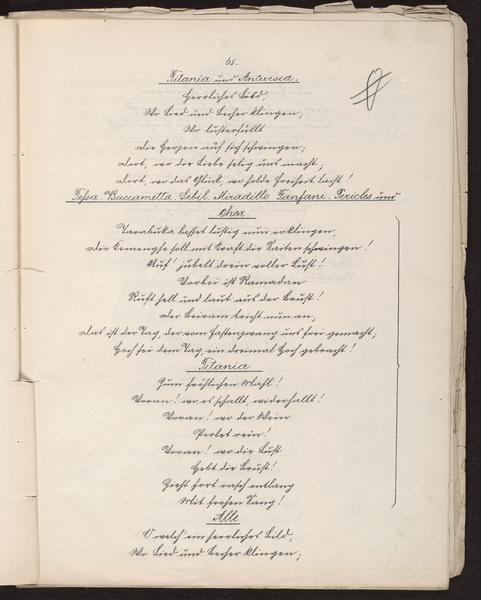 65.
Titania und Anterseia.
Herrliches Bild,
Wo Lied und Becher klingen,
Wo lusterfüllt
Die Herzen auf sich schwingen;
Dort, wo die Liebe selig uns macht;
Dort, wo das Glück, wo holde Freiheit lacht!
Tessa Buccametta Sebil Miradillo Fanfani Pericles und
Chor.
Tarabuka lasset lustig nun erklingen,
Die Kemenghe soll mit Kraft die Saiten schwingen!
Auf! jubelt drein voller Lust!
Vorbei ist Ramadan
Ruft hell und laut aus der Brust!
Der Beiram bricht nun an,
Das ist der Tag, der vom Fastenzwang uns frei gemacht;
Hoch sei dem Tag ein dreimal Hoch gebracht!
Titania
Zum fröhlichen Mahl!
Voran! wo es schallt, widerhallt!
Voran! wo der Wein
Perlet rein!
Voran! wo die Lust
Hebt die Brust!
Zieht fort rasch entlang
Mit frohem Sang!
Alle
O welch' ein herrliches Bild,
Wo Lied und Becher klingen;